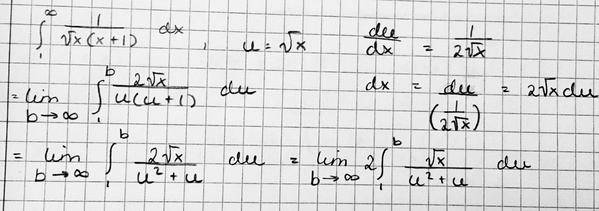 ∫₁^∞ 1/(√x(x+1)) dx , u = √x du/dx = 1/(2√x)
= lim b→∞ ∫₁^b 2√x/(u(u+1)) du dx = du/(1/(2√x)) = 2√x du
= lim b→∞ ∫₁^b 2√x/(u²+u) du = lim b→∞ 2∫₁^b √x/(u²+u) du